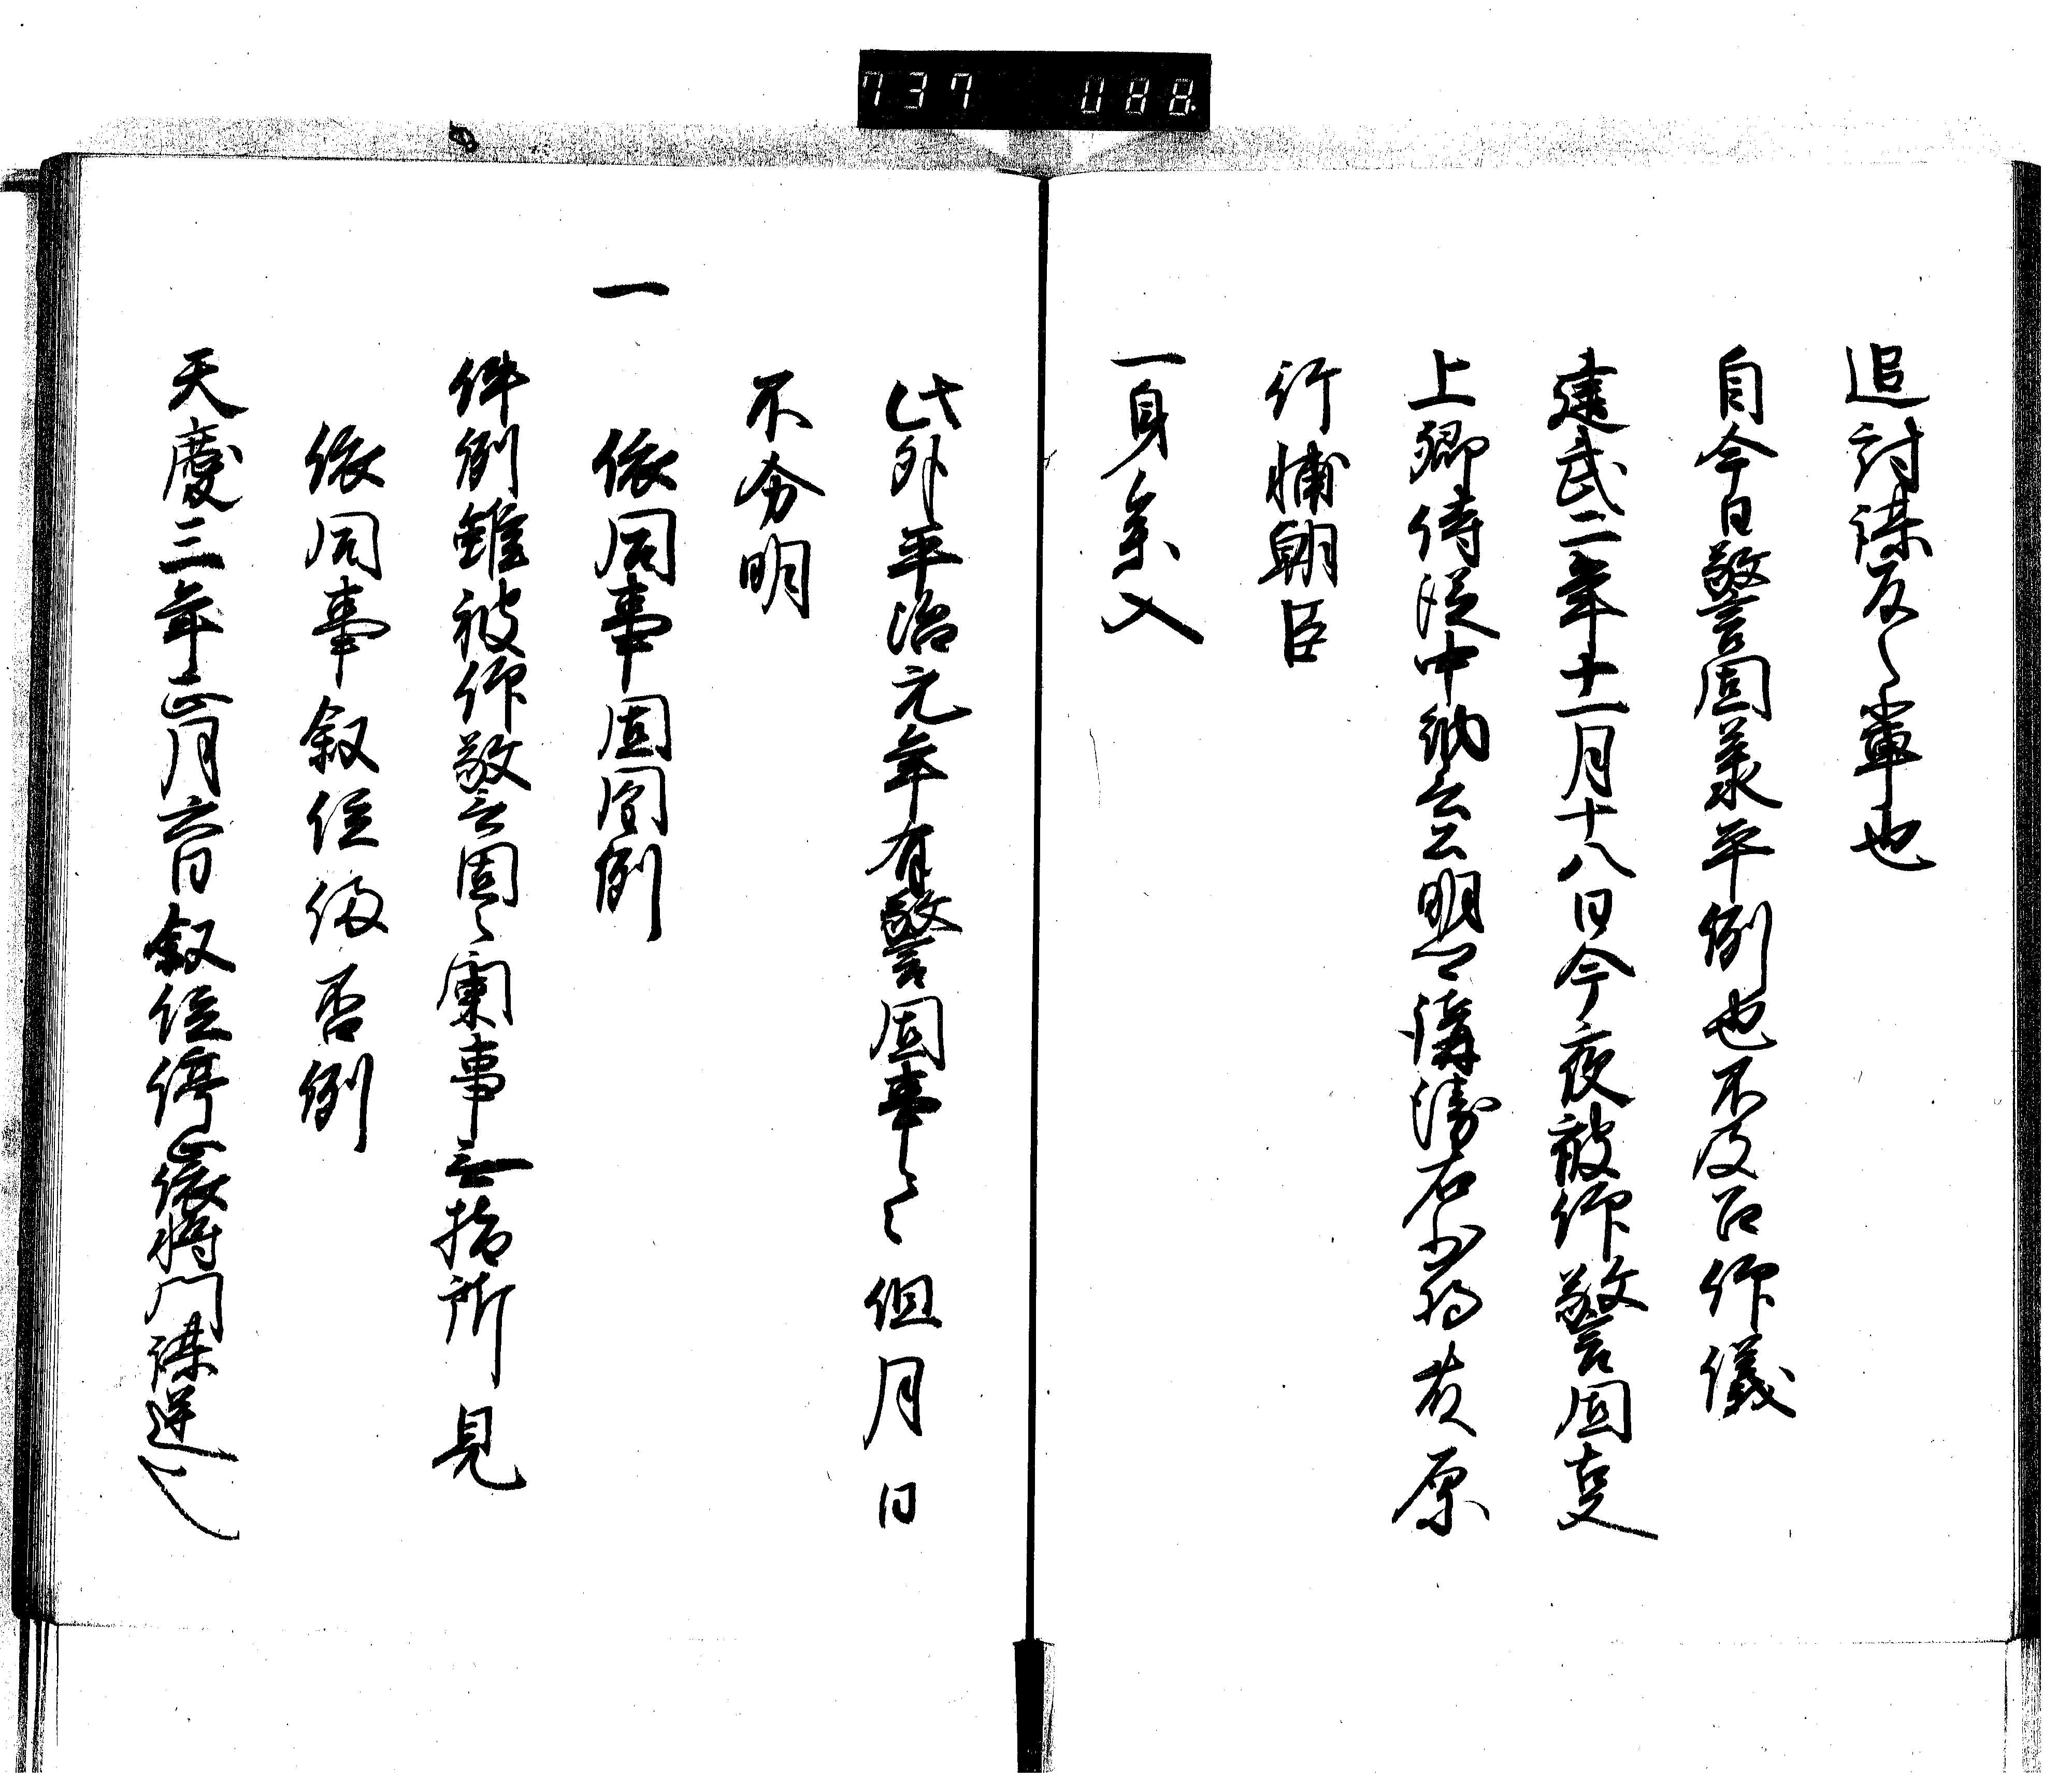 737 088
追討謀反之輩也
自今日警固承平例也不及召仰儀
建武二年十一月十八日今夜被仰警固事
上卿侍従中納言公明卿 右少将藤原
行輔朝臣
一身参入
此外平治元年有警固事云々但月日
不分明
一 依同事固関例
件例雖被仰警固々関事無指所見
依同事叙位停否例
天慶三年正月六日叙位停止依将門謀逆也